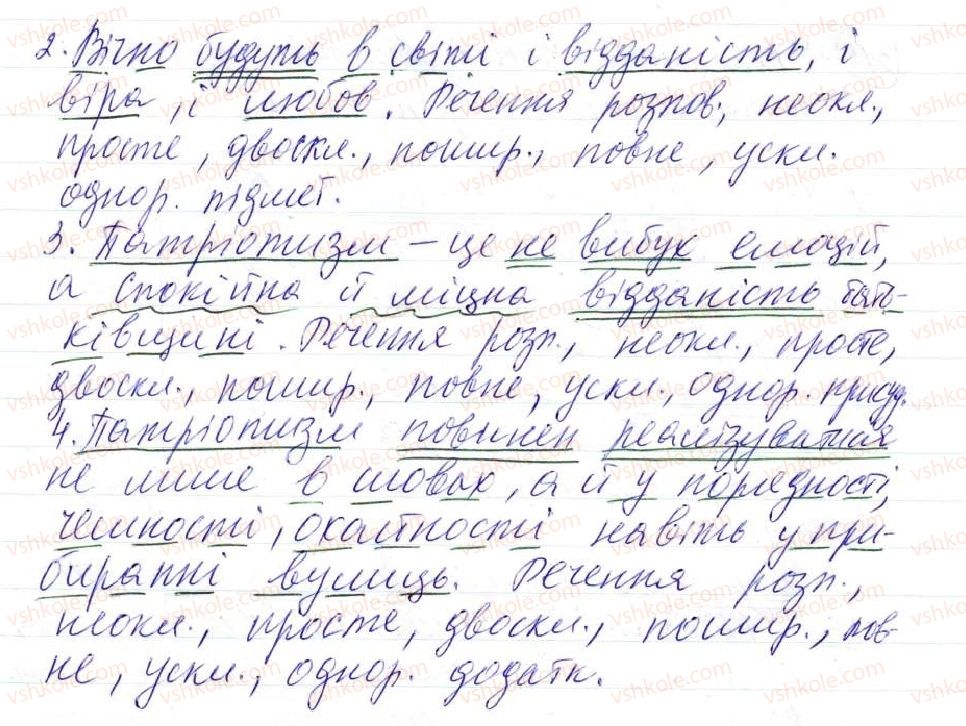 2. Вічно будуть в світі і відданість, і
віра, і любов. Речення розпов., неокл.,
просте, двоскл., пошир., повне, ускл.
однор. підмет.
3. Патріотизм – це не вибух емоцій,
а спокійна й міцна відданість бать-
ківщині. Речення розп., неокл., просте,
двоскл., пошир., повне, ускл., однор. присуд.
4. Патріотизм повинен реалізуватися
не лише в словах, а й у порядності,
чемності, охайності навіть у при-
биранні вулиць. Речення розп.,
неокл., просте, двоскл., пошир., пов-
не, ускл., однор. додатк.